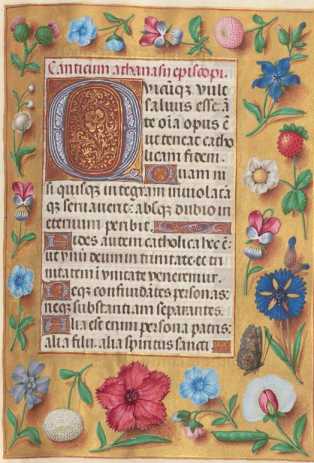 Canticum athanasii episcopi.
Quicūqȝ vult
saluus esse ā
te oīa opus ē
ut teneat catho
licam fidem.
Quam ni
si quisqȝ integram inuiolatā
qȝ seruauerit: absqȝ dubio in
eternum peribit.
Fides autem catholica hec ē:
ut vnū deum in trinitate et tri
nitatem ī vnitate veneremur.
Neqȝ confundētes personas:
neqȝ substantiam separantes.
Alia est enim persona patris:
alia filii, alia spiritus sancti